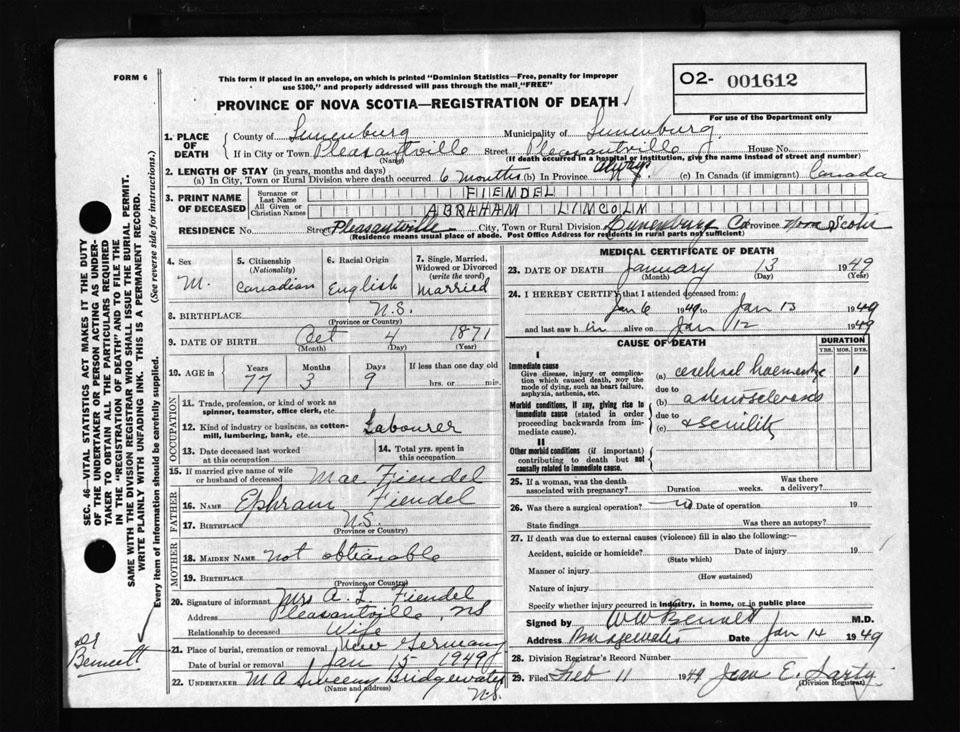 FORM 6
This form if placed in an envelope, on which is printed "Dominion Statistics—Free, penalty for improper
use $300," and properly addressed will pass through the mail "FREE"
O2- 001612
For use of the Department only
PROVINCE OF NOVA SCOTIA—REGISTRATION OF DEATH
1. PLACE OF DEATH
County of Lunenburg Municipality of Lunenburg
If in City or Town Pleasantville Street Pleasantville House No.
(Name) (If death occurred in a hospital or institution, give the name instead of street and number)
2. LENGTH OF STAY (in years, months and days)
(a) In City, Town or Rural Division where death occurred 6 months (b) In Province always (c) In Canada (if immigrant) Canada
3. PRINT NAME OF DECEASED
Surname or Last Name FIENDEL
All Given or Christian Names ABRAHAM LINCOLN
RESIDENCE No. Street Pleasantville City, Town or Rural Division Lunenburg Co Province Nova Scotia
(Residence means usual place of abode. Post Office Address for residents in rural parts not sufficient)
4. Sex M.
5. Citizenship (Nationality) Canadian
6. Racial Origin English
7. Single, Married, Widowed or Divorced (write the word) Married
8. BIRTHPLACE N.S.
(Province or Country)
9. DATE OF BIRTH Oct 4 1871
(Month) (Day) (Year)
10. AGE in Years Months Days If less than one day old
77 3 9 hrs. or min.
OCCUPATION
11. Trade, profession, or kind of work as spinner, teamster, office clerk, etc.
12. Kind of industry or business, as cotton-mill, lumbering, bank, etc. Labourer
13. Date deceased last worked at this occupation
14. Total yrs. spent in this occupation
15. If married give name of wife or husband of deceased Mae Fiendel
FATHER
16. Name Ephram Fiendel
17. Birthplace N.S.
(Province or Country)
MOTHER
18. Maiden Name not obtainable
19. Birthplace
(Province or Country)
20. Signature of informant Mrs A. L. Fiendel
Address Pleasantville, NS
Relationship to deceased Wife
21. Place of burial, cremation or removal New Germany
Date of burial or removal Jan 15 1949
22. UNDERTAKER M A Sweeny Bridgewater
(Name and address) N.S.
MEDICAL CERTIFICATE OF DEATH
23. DATE OF DEATH January 13 1949
(Month) (Day) (Year)
24. I HEREBY CERTIFY that I attended deceased from:
Jan 6 1949 to Jan 13 1949
and last saw him alive on Jan 12 1949
CAUSE OF DEATH
DURATION
YRS. MOS. DYS.
I
Immediate cause
Give disease, injury or complication which caused death, not the mode of dying, such as heart failure, asphyxia, asthenia, etc.
(a) cerebral haemorrhage 1
due to
Morbid conditions, if any, giving rise to immediate cause (stated in order proceeding backwards from immediate cause).
(b) arteriosclerosis
due to
(c) & senility
II
Other morbid conditions (if important) contributing to death but not causally related to immediate cause.
25. If a woman, was the death associated with pregnancy? Duration weeks. Was there a delivery?
26. Was there a surgical operation? no Date of operation 19
State findings Was there an autopsy?
27. If death was due to external causes (violence) fill in also the following:
Accident, suicide or homicide? Date of injury 19
(State which)
Manner of injury
(How sustained)
Nature of injury
Specify whether injury occurred in industry, in home, or in public place
Signed by W W Bennett M.D.
Address Bridgewater Date Jan 14 1949
28. Division Registrar's Record Number
29. Filed Feb 11 1949 Jean E.
(Division Registrar)
SEC. 46—VITAL STATISTICS ACT MAKES IT THE DUTY
OF THE UNDERTAKER OR PERSON ACTING AS UNDER-
TAKER TO OBTAIN ALL THE PARTICULARS REQUIRED
IN THE "REGISTRATION OF DEATH" AND TO FILE THE
SAME WITH THE DIVISION REGISTRAR WHO SHALL ISSUE THE BURIAL PERMIT.
WRITE PLAINLY WITH UNFADING INK. THIS IS A PERMANENT RECORD.
Every item of information should be carefully supplied. (See reverse side for instructions.)
Dr
Bennett